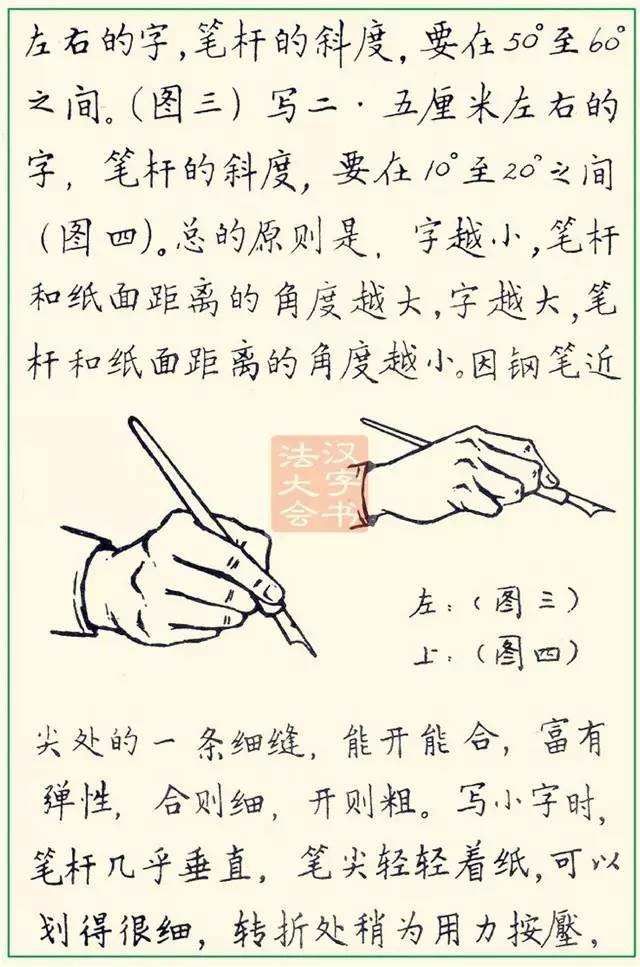 左右的字,笔杆的斜度,要在50°至60°
之间。(图三)写二·五厘米左右的
字,笔杆的斜度,要在10°至20°之间
(图四)。总的原则是,字越小,笔杆
和纸面距离的角度越大,字越大,笔
杆和纸面距离的角度越小。因钢笔近
法汉
大字
会书
左:(图三)
上:(图四)
尖处的一条细缝,能开能合,富有
弹性,合则细,开则粗。写小字时,
笔杆几乎垂直,笔尖轻轻着纸,可以
划得很细,转折处稍为用力按壓,